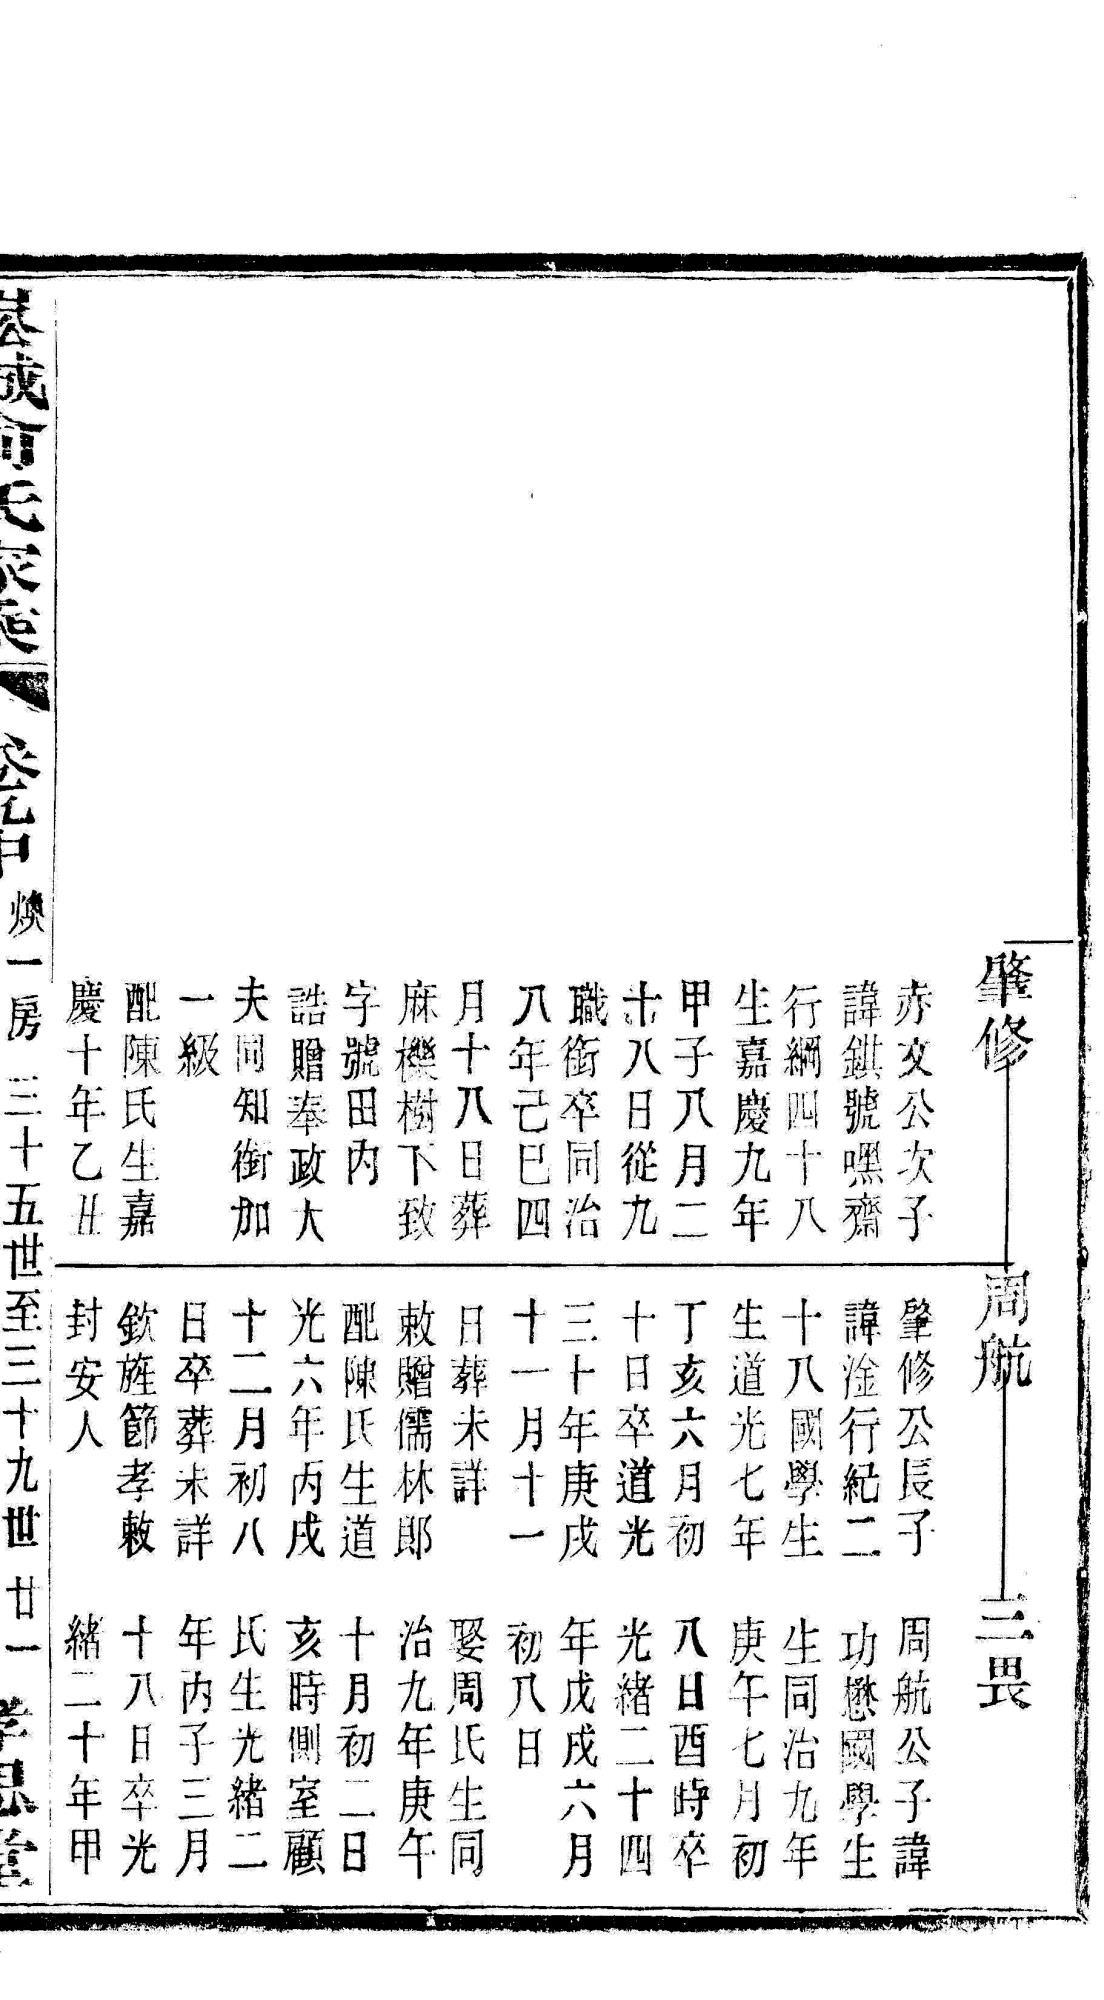 肇修
赤文公次子
諱錤號嘿齋
行綱四十八
生嘉慶九年
甲子八月二
十八日從九
職銜卒同治
八年己巳四
月十八日葬
麻櫟樹下致
字號田內
誥贈奉政大
夫同知銜加
一級
配陳氏生嘉
慶十年乙丑
周航
肇修公長子
諱淦行紀二
十八國學生
生道光七年
丁亥六月初
十日卒道光
三十年庚戌
十一月十一
日葬未詳
敕贈儒林郎
配陳氏生道
光六年丙戌
十二月初八
日卒葬未詳
欽旌節孝敕
封安人
三畏
周航公子諱
功懋國學生
生同治九年
庚午七月初
八日酉時卒
光緒二十四
年戊戌六月
初八日
娶周氏生同
治九年庚午
十月初二日
亥時側室顧
氏生光緒二
年丙子三月
十八日卒光
緒二十年甲
俞氏家乘
卷九中
煥一房 三十五世至三十九世 廿一 孝思堂